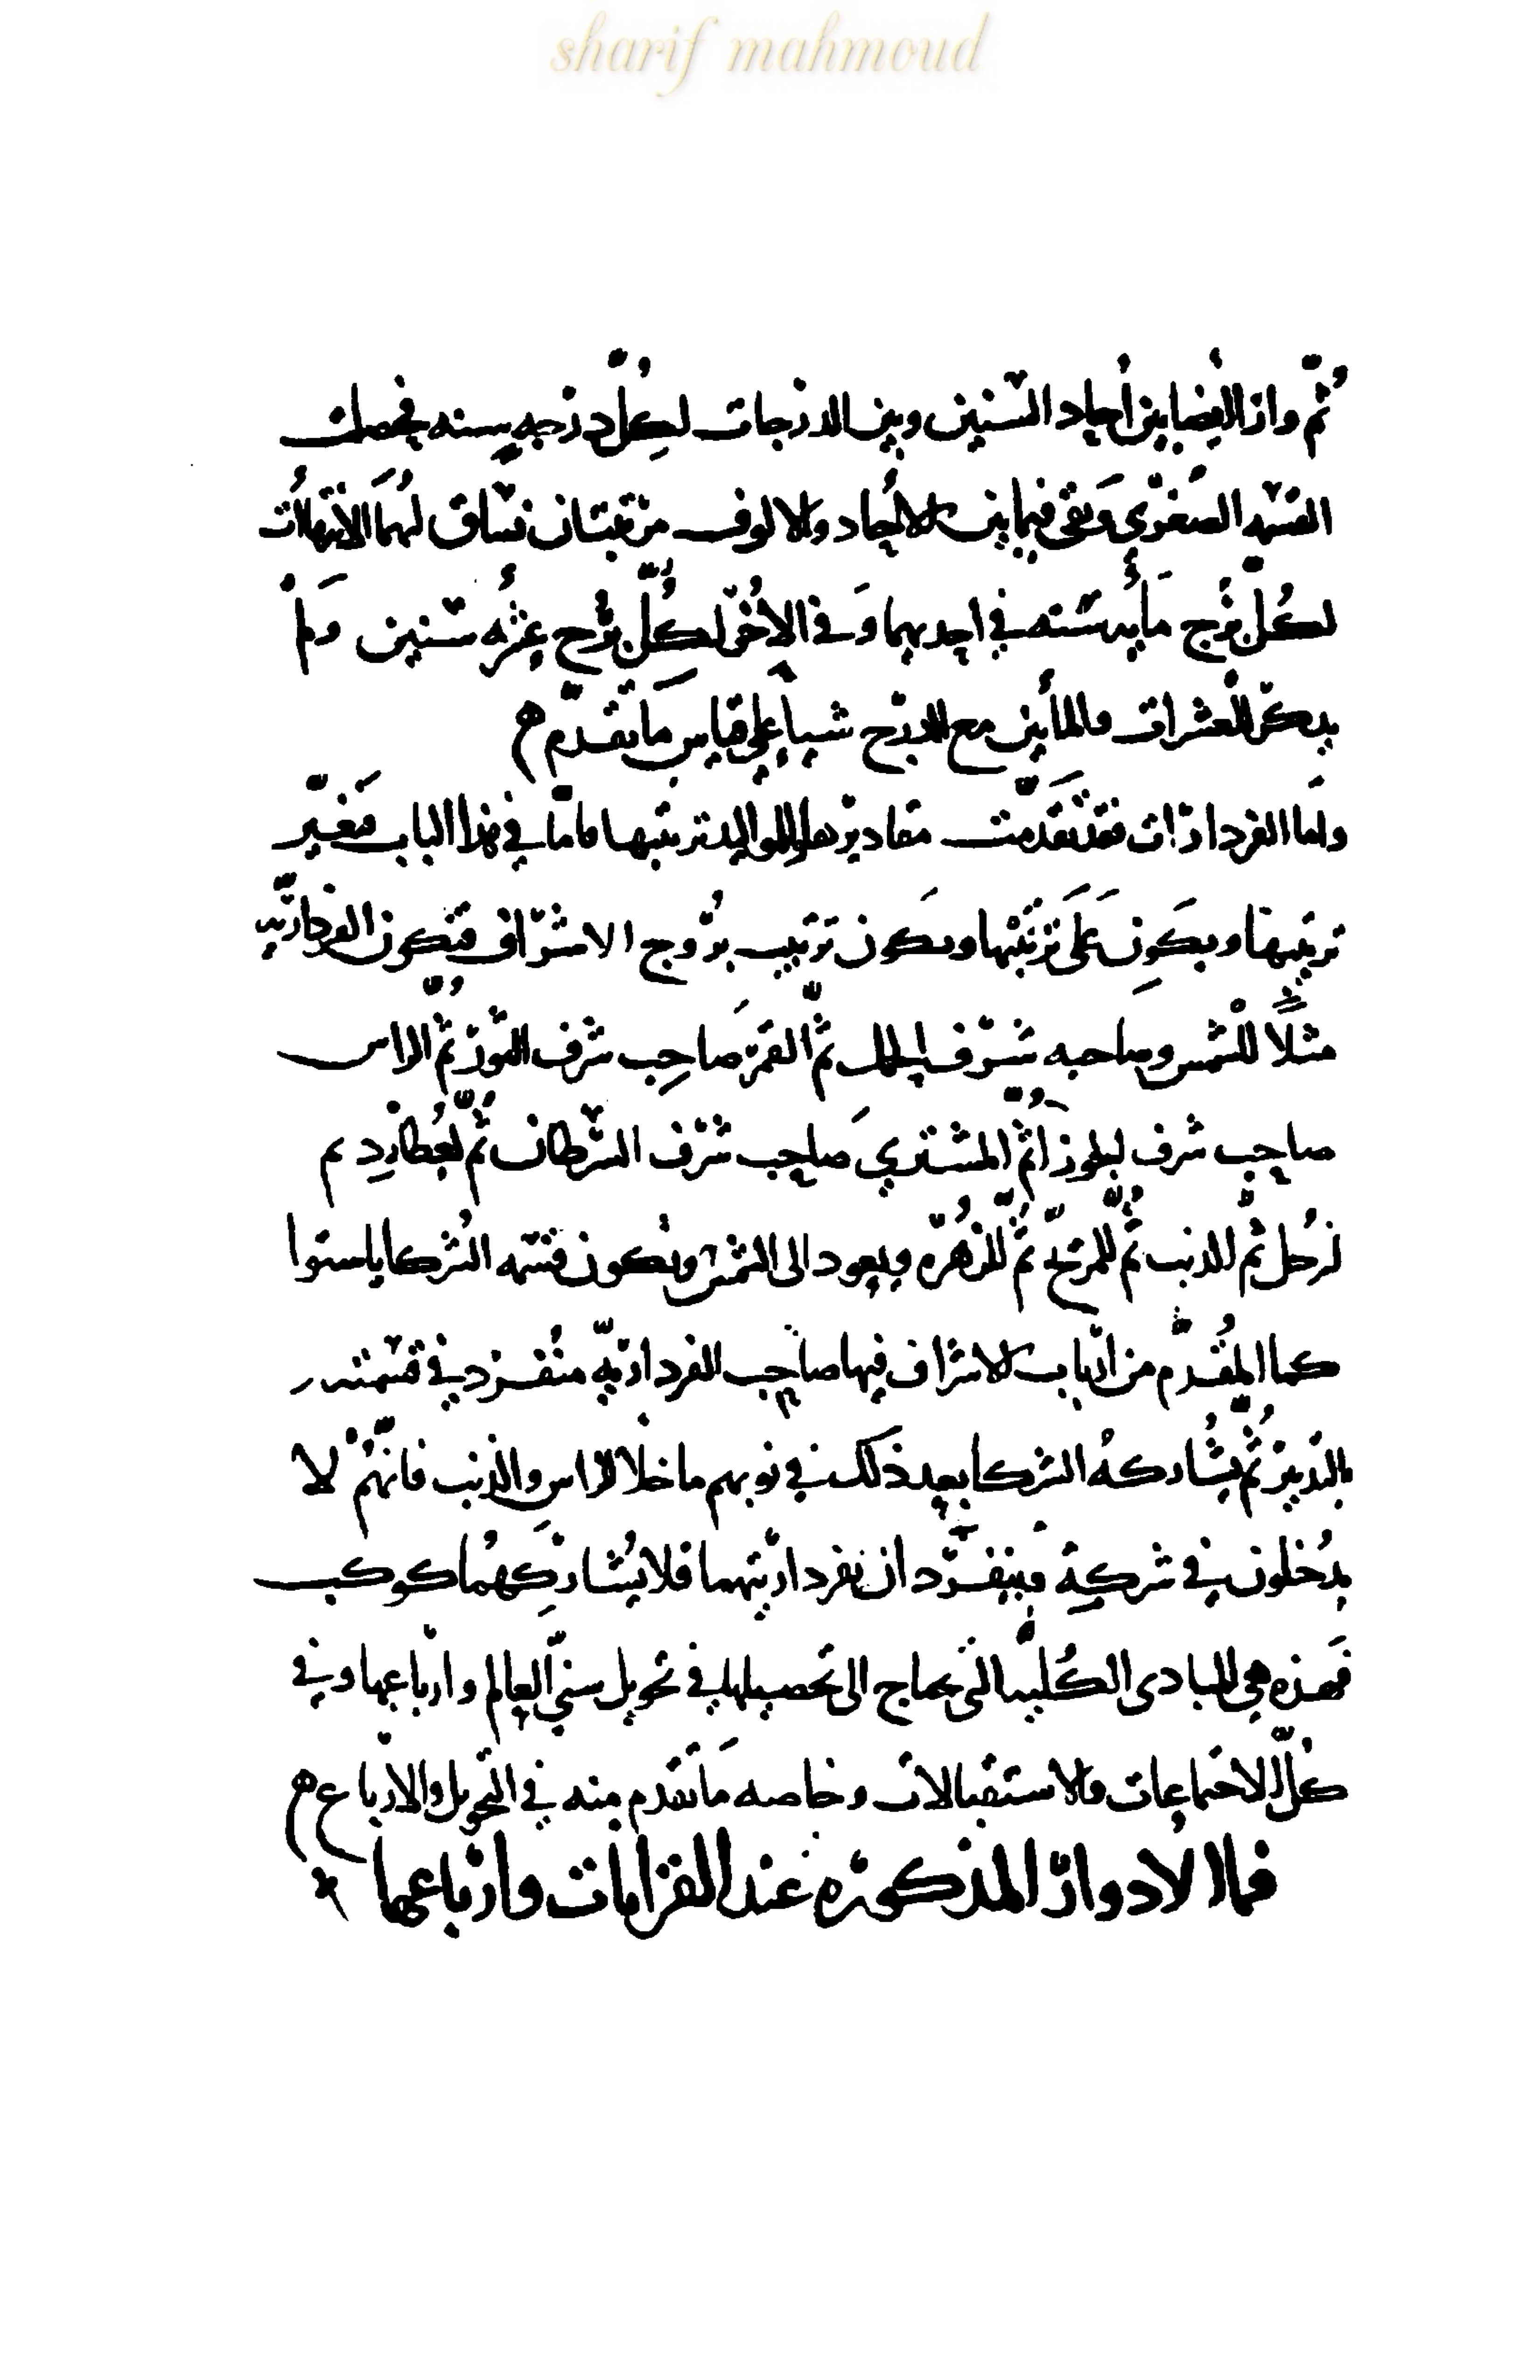 sharif mahmoud
ثُمّ وازا ايضا بين أحاد السّنين وبين الدرجات لكُلّ درجه سنه فحصلت
القسمه الصُغرى وَبقى فيما بين الأحاد والالوف مرتبتان تسّاق لهُمَا الانتهاآت
لكُلّ بُرج مأيه سَنه في احديهما وَفى الاخرَ لكُلّ بُرج عِشره سّنين وَلمْ
يذكر العشرات والمأين مع الدرج شيأ على قياس مَا تقدّم ه
واما الفردارات فقد تقدّمت مقاديرها وللمواليد ترتيبها فامّا في هذا الباب فتغيّر
ترتيبها ويكَون عَلى ترتيبها ويكون ترتيب بُروج الاشراف فتكون الفرداريّه
مثلًا للشمس وصاحبه شرف الحمل ثمّ القمر صَاحِب شرف الثور ثُمّ الراس
صاحِب شرف الجوزا ثمّ المشتري صَاحِب شرف السّرطان ثُمّ لعُطارِد ثم
لزحُل ثمّ للذنب ثُمّ للمرّيخ ثُمّ للزُهرَه ويعود الى الشمس وتكون قسمه الشُركا بالسّوا
كما المُقدّم من ارباب الاشراف فيها صاحِب الفرداريّه منُفرد في قسّمته
بالتدبير ثُمّ يُشاركهُ الشركا بعد ذَلك في نوبهم ما خلا الراس والذنب فانّهُمْ لا
يدُخلون في شركةٍ فينفرّدان بفرداريتهما فلا يُشاركهُمَا كوكب
فهَذه هي المبادى الكُليّه التى يحتاج الى تحصيلها في تحويل سنيّ العالم وارباعها وفي
كُلّ الاجتماعات والاستقبالات وخاصه مَا تقدم منه في التحويل والارباع ه
فاما الادوار المذكوره عند القرانات وارباعها